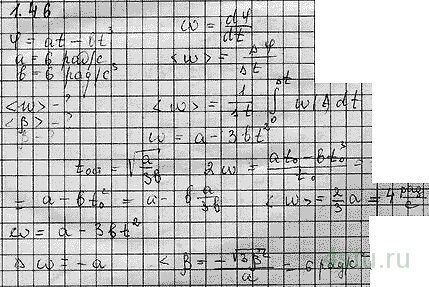 1.46
φ = at - bt³
a = 6 рад/с
b = 6 рад/с³
ω = dφ/dt
<ω> = Δφ/Δt
<ω> - ?
<β> - ?
<ω> = 1/Δt ∫₀^Δt ω(t)dt
ω = a - 3bt²
t₀ = √(a/3b)
2ω = (at₀ - bt₀³)/t₀ =
= a - bt₀² = a - b a/3b
<ω> = 2/3 a = 4 рад/с
ω = a - 3bt²
Δω = -a